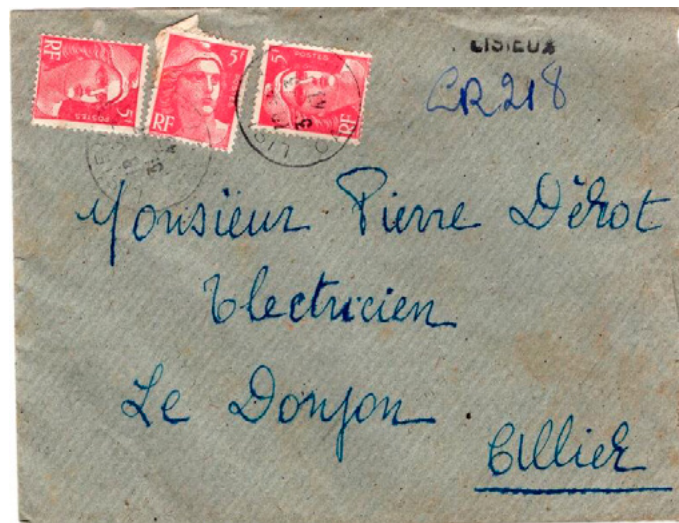 RF 5F POSTES
5F RF
5F POSTES RF
LISIEUX
CR 218
Monsieur Pierre Dérot
Electricien
Le Donjon
Allier